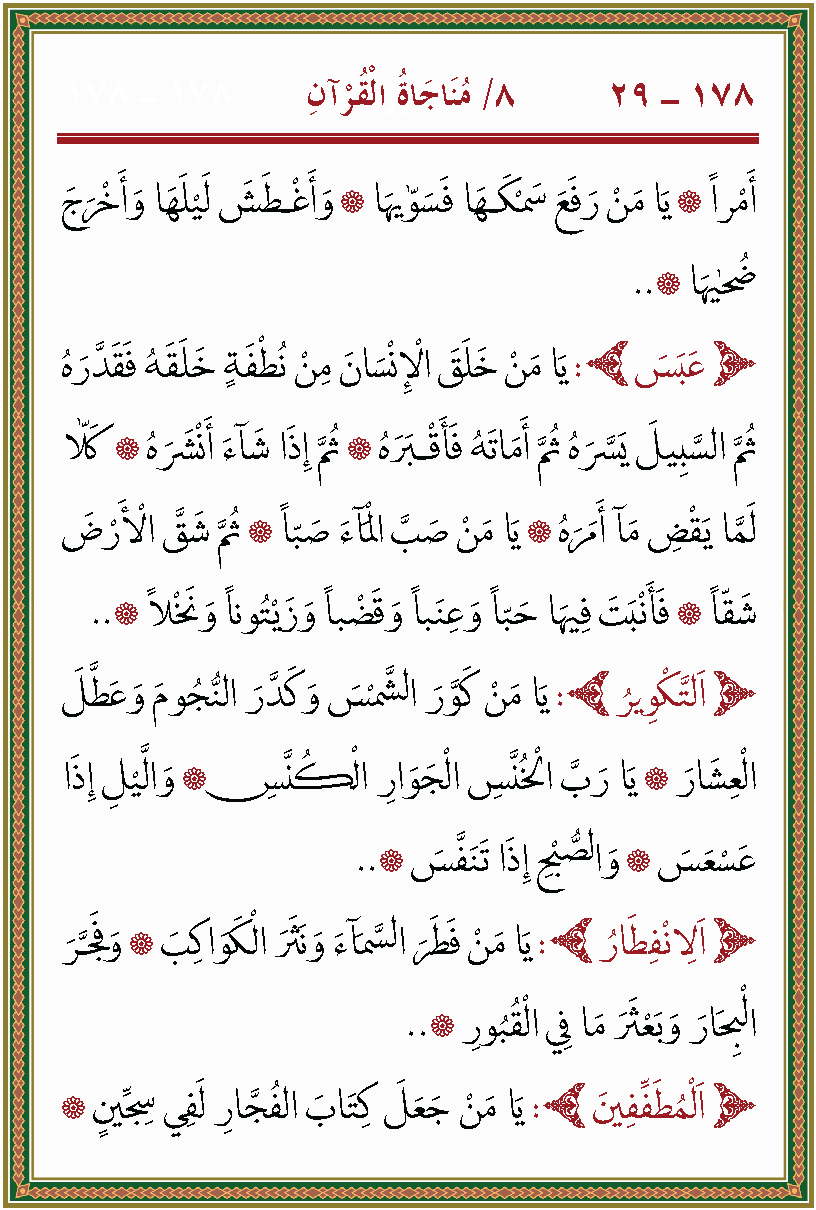 ١٧٨ – ٢٩ ٨/ مُنَاجَاةُ الْقُرْآنِ
أَمْراً ۞ يَا مَنْ رَفَعَ سَمْكَهَا فَسَوّٰيهَا ۞ وَأَغْطَشَ لَيْلَهَا وَأَخْرَجَ
ضُحٰيهَا ۞..
﴿عَبَسَ﴾: يَا مَنْ خَلَقَ الْإِنْسَانَ مِنْ نُطْفَةٍ خَلَقَهُ فَقَدَّرَهُ
ثُمَّ السَّبِيلَ يَسَّرَهُ ثُمَّ أَمَاتَهُ فَأَقْبَرَهُ ۞ ثُمَّ إِذَا شَآءَ أَنْشَرَهُ ۞ كَلَّا
لَمَّا يَقْضِ مَآ أَمَرَهُ ۞ يَا مَنْ صَبَّ الْمَآءَ صَبّاً ۞ ثُمَّ شَقَّ الْأَرْضَ
شَقّاً ۞ فَأَنْبَتَ فِيهَا حَبّاً وَعِنَباً وَقَضْباً وَزَيْتُوناً وَنَخْلاً ۞..
﴿اَلتَّكْوِيرُ﴾: يَا مَنْ كَوَّرَ الشَّمْسَ وَكَدَّرَ النُّجُومَ وَعَطَّلَ
الْعِشَارَ ۞ يَا رَبَّ الْخُنَّسِ الْجَوَارِ الْكُنَّسِ ۞ وَالَّيْلِ إِذَا
عَسْعَسَ ۞ وَالصُّبْحِ إِذَا تَنَفَّسَ ۞..
﴿اَلِانْفِطَارُ﴾: يَا مَنْ فَطَرَ السَّمَآءَ وَنَثَرَ الْكَوَاكِبَ ۞ وَفَجَّرَ
الْبِحَارَ وَبَعْثَرَ مَا فِي الْقُبُورِ ۞..
﴿اَلْمُطَفِّفِينَ﴾: يَا مَنْ جَعَلَ كِتَابَ الْفُجَّارِ لَفِي سِجِّينٍ ۞